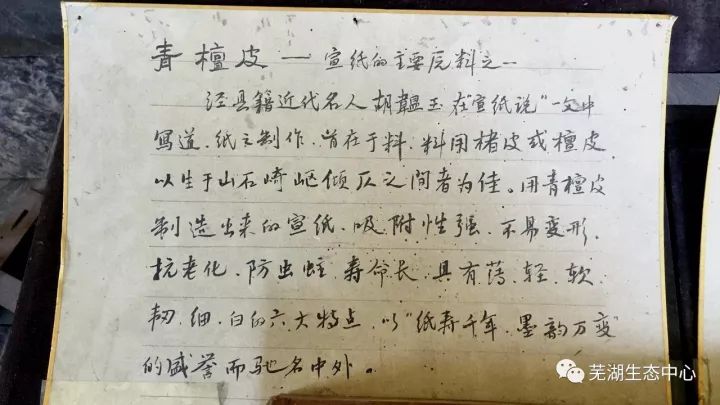 青檀皮——宣纸的主要原料之一
泾县籍近代名人胡韫玉在“宣纸说”一文中
写道、纸之制作、首在于料、料用楮皮或檀皮
以生于山石崎岖倾仄之间者为佳。用青檀皮
制造出来的宣纸、吸附性强、不易变形、
抗老化、防虫蛀、寿命长、具有薄、轻、软
韧、细、白的六大特点、以“纸寿千年、墨韵万变”
的盛誉而驰名中外。
芜湖生态中心